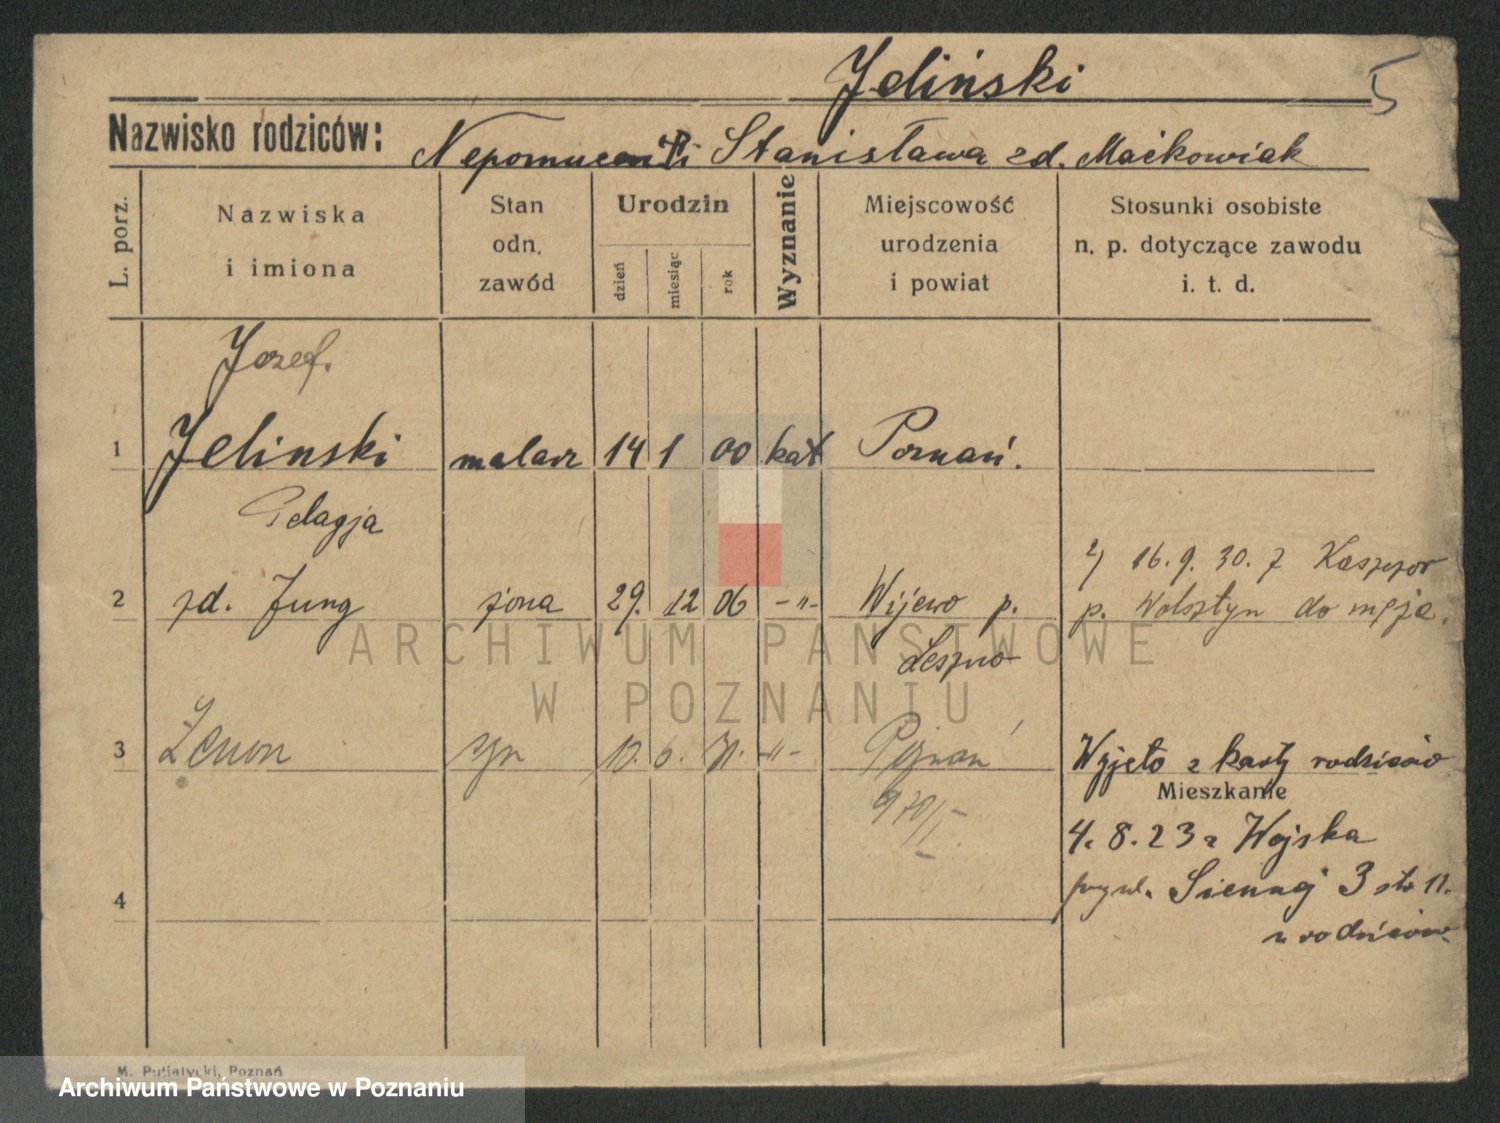 Jeliński
5
Nazwisko rodziców: Nepomucen i Stanisława zd. Maćkowiak
L. porz.
Nazwiska
i imiona
Stan
odn.
zawód
Urodzin
dzień
miesiąc
rok
Wyznanie
Miejscowość
urodzenia
i powiat
Stosunki osobiste
n. p. dotyczące zawodu
i. t. d.
Jozef.
1 Jelinski malarz 14 1 00 kat Poznań.
Pelagja
2) 16.9.30. z Kaszczor
2 zd. Jung żona 29. 12 06 -"- Wijewo p.
p. Wolsztyn do męża.
Leszno
ARCHIWUM PAŃSTWOWE
W POZNANIU
3 Zenon syn 10. 6. 31. -"- Poznań
Wyjęto z karty rodziców
Mieszkanie
970/I
4. 8. 23 z Wojska
4
Siennej 3 str 11.
u rodziców
M. Putiatycki, Poznań
Archiwum Państwowe w Poznaniu